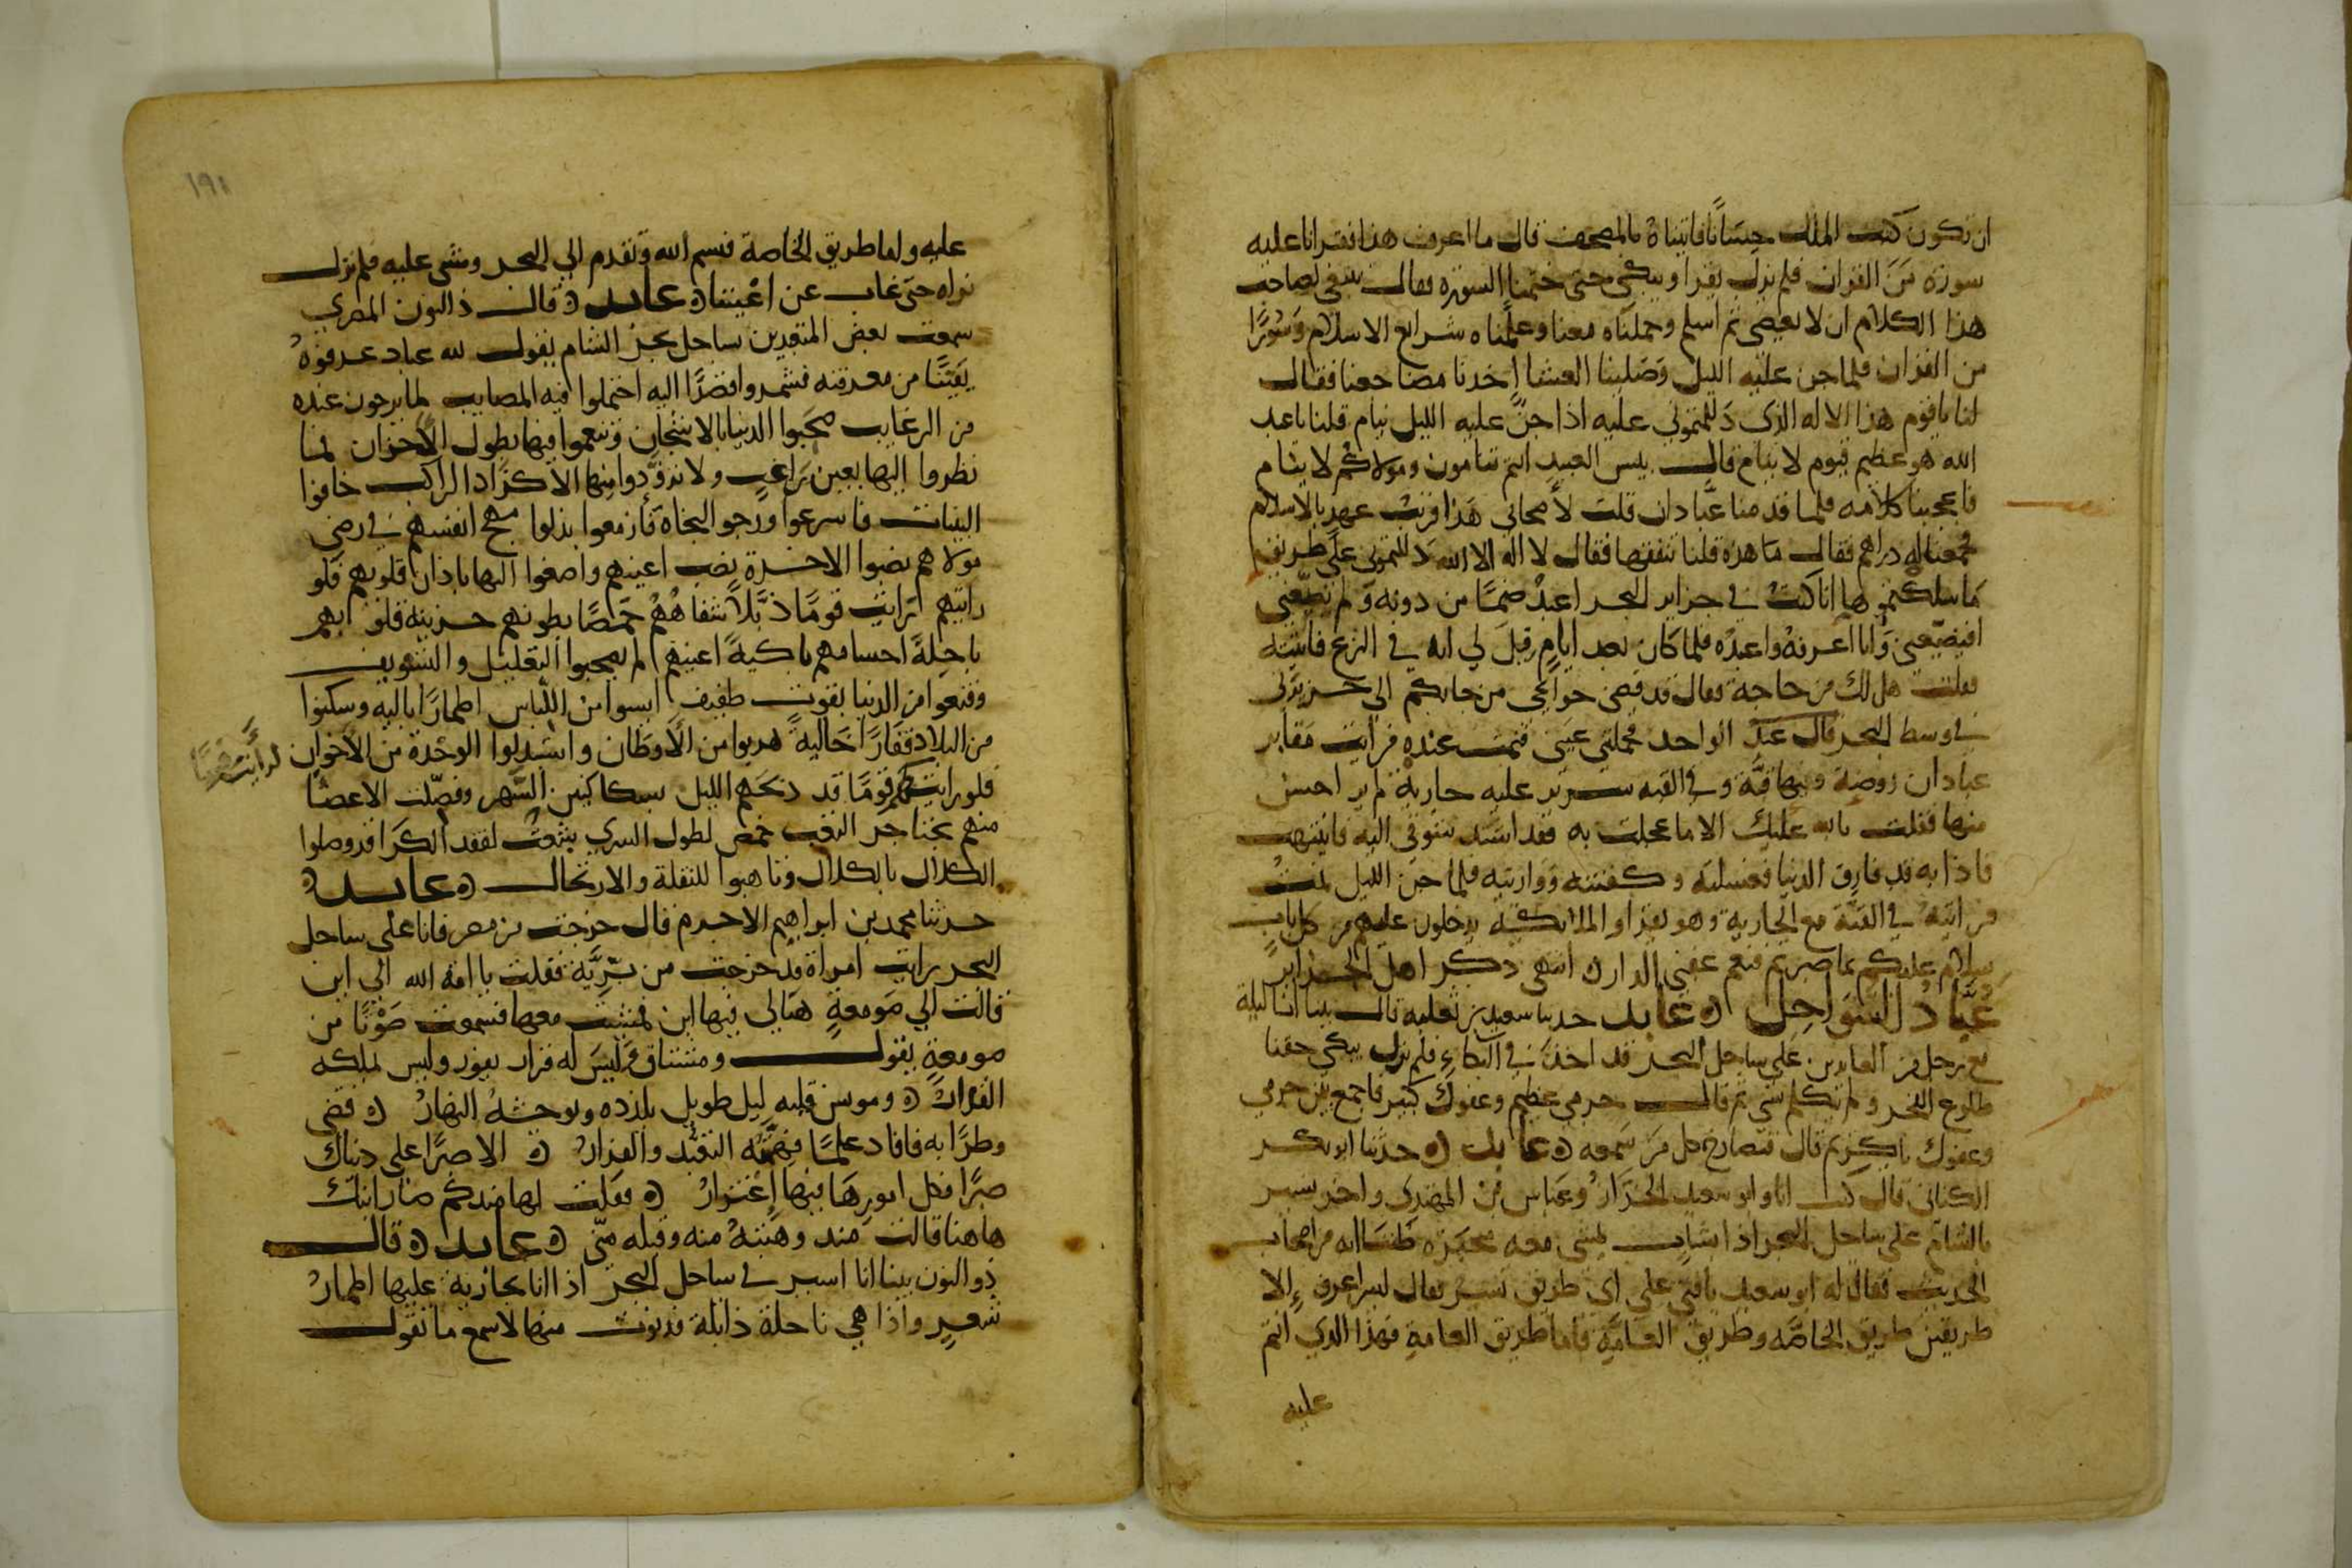 ان تكون كتب الملك حسانا فاتيناه بالمصحف قال ما اعرف هذا فقرانا عليه
سورة من القران فلم يزل يقرا ويبكي حتى ختمنا السورة فقال ينبغي لصاحب
هذا الكلام ان لا يعصى ثم اسلم وحملناه معنا وعلمناه شرايع الاسلام وسورا
من القران فلما جن عليه الليل وصلينا العشا اخذنا مضاجعنا فقال
لنا يا قوم هذا الاله الذي دللتموني عليه اذا جن عليه الليل ينام قلنا يا عبد
الله هو عظيم قيوم لا ينام قال بيس العبيد انتم تنامون ومولاكم لا ينام
فاعجبنا كلامه فلما قدمنا عبادان قلت لاصحابي هذا قريب عهد بالاسلام
فجمعنا له دراهم فقال ما هذه قلنا تنفقها فقال لا اله الا الله دللتموني على طريق
ما سلكتموها انا كنت في جزاير البحر اعبد صنما من دونه ولم يضيعني
افيضيعني وانا اعرفه واعبده فلما كان بعد ايام قيل لي انه في النزع فاتيته
فقلت هل لك من حاجة فقال قد قضى حوايجي من جابكم الى جزيرتي
في وسط البحر قال عبد الواحد فحملتني عيني فنمت عنده فرايت مقابر
عبادان روضة وفيها قبة وفي القبه سرير عليه جارية لم ير احسن
منها فقالت بالله عليك الا ما عجلت به فقد اشتد شوقي اليه فانتبهت
فاذا به قد فارق الدنيا فغسلته وكفنته وواريته فلما جن الليل نمت
فرايته في القبة مع الجارية وهو يقرا والملائكة يدخلون عليهم من كل باب
سلام عليكم بما صبرتم فنعم عقبى الدار انتهى ذكر اهل الجزاير
عباد السواحل ه عابد حدثنا سعيد بن ثعلبه قال بينا انا ليلة
مع رجل من العابدين على ساحل البحر قد اخذ في البكاء فلم يزل يبكي خفنا
طلوع الفجر ولم يتكلم بشي ثم قال جرمي عظيم وعفوك كبير فاجمع بين جرمي
وعفوك يا كريم قال فتصارخ كل من سمعه ه عابد ه حدثنا ابو بكر
الكناني قال كنت انا وابو سعيد الخراز وعباس بن المهتدي واخر نسير
بالشام على ساحل البحر اذا شاب يمشي معه محبرة ظننا انه من اصحاب
الحديث فقال له ابو سعيد يا فتى على اي طريق تسير فقال ليس اعرف الا
طريقين طريق الخاصه وطريق العامة فاما طريق العامة فهذا الذي انتم
عليه
١٩١
عليه واما طريق الخاصة فبسم الله وتقدم الى البحر ومشى عليه فلم نزل
نراه حتى غاب عن اعيننا ه عابد ه قال ذا النون المصري
سمعت بعض المتعبدين بساحل بحر الشام يقول لله عباد عرفوه
يقينا من معرفته فشمروا قصدا اليه احتملوا فيه المصايب لما يرجون عنده
من الرغايب صحبوا الدنيا بالاشجان وتنعموا فيها بطول الاحزان فما
نظروا اليها بعين راغب ولا تزودوا منها الا كزاد الراكب خافوا
البيات فاسرعوا ورجوا النجاة فازمعوا بذلوا مهج انفسهم في رضى
مولاهم نصبوا الاخرة نصب اعينهم واصغوا اليها باذان قلوبهم فلو
رايتهم رايت قوما ذبلا شفاههم خمصا بطونهم حزينة قلوبهم
ناحلة اجسامهم باكية اعينهم لم يصحبوا التعليل والتسويف
وقنعوا من الدنيا بقوت طفيف لبسوا من اللباس اطمارا باليه وسكنوا
من البلاد قفارا خالية هربوا من الاوطان واستبدلوا الوحدة من الاخوان
فلو رايتهم لرايت قوما قد ذبحهم الليل بسكاكين السهر وفصلت الاعضا
منهم بخناجر التعب خمص لطول السرى شعث لفقد الكرا قد وصلوا
الكلال بالكلال وتاهبوا للنقلة والارتحال ه عابد ه
حدثنا محمد بن ابراهيم الاخرم قال خرجت من مصر فانا على ساحل
البحر رايت امراة قد خرجت من برية فقلت يا امة الله الى اين
قالت الى صومعة هنا لي فيها ابن فمشيت معها فسمعت صوتا من
صومعة يقول ومشتاق وليس له قرار يفوز وليس لملكه
القرار ه ومونس قلبه ليل طويل يلذه ويوحشه النهار ه قضى
وطرا به فافاد علما فهمته التعبد والفرار ه الا صبرا على دنياك
صبرا فكل امورها فيها اغترار ه فقلت لها منذ كم صار ابنك
هاهنا قالت منذ وهبته منه وقبله مني ه عابد ه قال
ذو النون بينا انا اسير في ساحل البحر اذا انا بجارية عليها اطمار
شعر واذا هي ناحلة ذابلة فدنوت منها لاسمع ما تقول